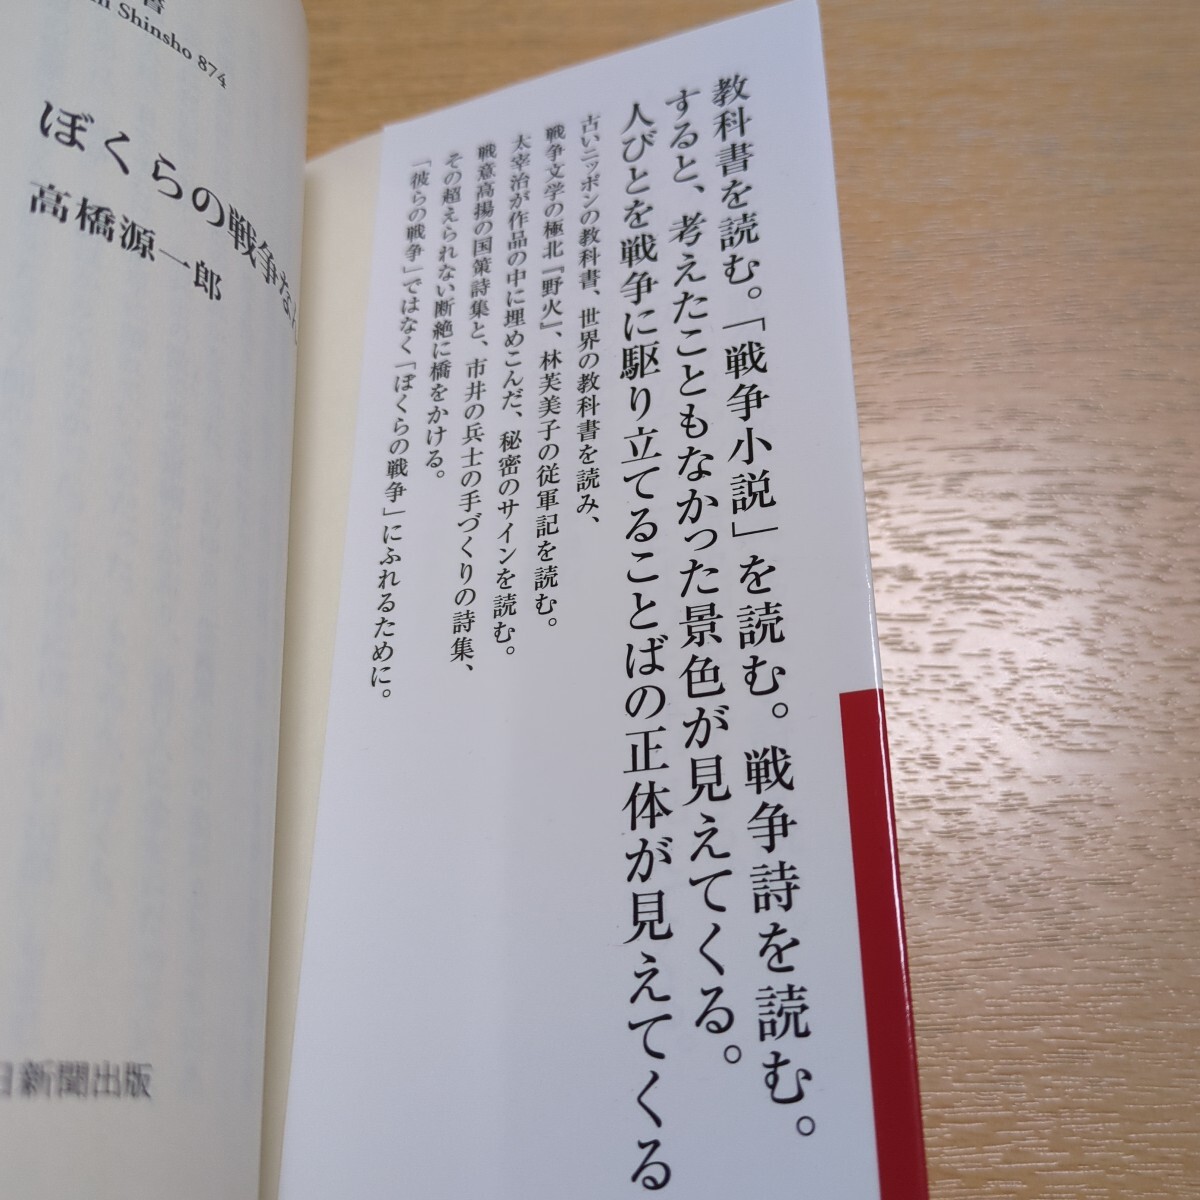 教科書を読む。「戦争小説」を読む。戦争詩を読む。
すると、考えたこともなかった景色が見えてくる。
人びとを戦争に駆り立てることばの正体が見えてくる
古いニッポンの教科書、世界の教科書を読み、
戦争文学の極北『野火』、林芙美子の従軍記を読む。
太宰治が作品の中に埋めこんだ、秘密のサインを読む。
戦意高揚の国策詩集と、市井の兵士の手づくりの詩集、
その超えられない断絶に橋をかける。
「彼らの戦争」ではなく「ぼくらの戦争」にふれるために。
書
Shinsho 874
ぼくらの戦争な
高橋源一郎
新聞出版